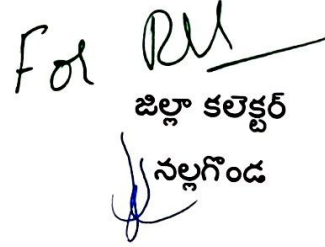 For
జిల్లా కలెక్టర్
నల్లగొండ